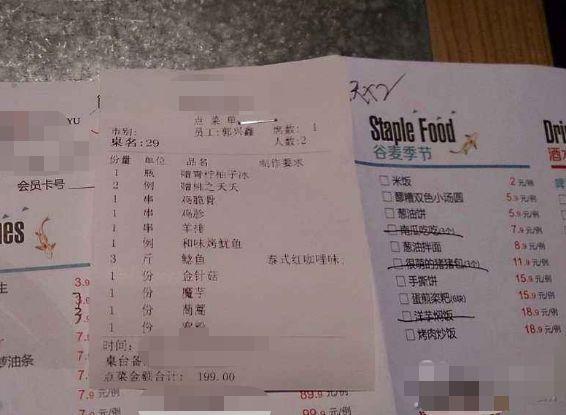 YU
会员卡号
点菜单
市别: 员工:郭兴鑫 席数: 1
桌名:29 人数:2
份量 单位 品名 制作要求
1 瓶 赠青柠柚子冰
2 例 赠桃之天天
1 串 鸡脆骨
1 串 鸡胗
1 串 羊排
1 例 和味烤鱿鱼
3 斤 鲶鱼 泰式红咖喱味
1 份 金针菇
1 份 魔芋
1 份 茼蒿
1 份 宽粉
时间:
桌台备
点菜金额合计: 199.00
Staple Food
谷麦季节
米饭 2元/例
醪糟双色小汤圆 5.9元/例
葱油饼 5.9元/例
南瓜吃吃(3个) 7.9元/例
葱油拌面 8.9元/例
很萌的猪猪包(3个) 11.9元/例
手撕饼 15.9元/例
蛋煎糍粑(6块) 15.9元/例
洋芋焖饭 18.9元/例
烤肉炒饭 18.9元/例
酒水
nes
3.9
7.9
7.9
油条
7.9元/例
99.9元/例